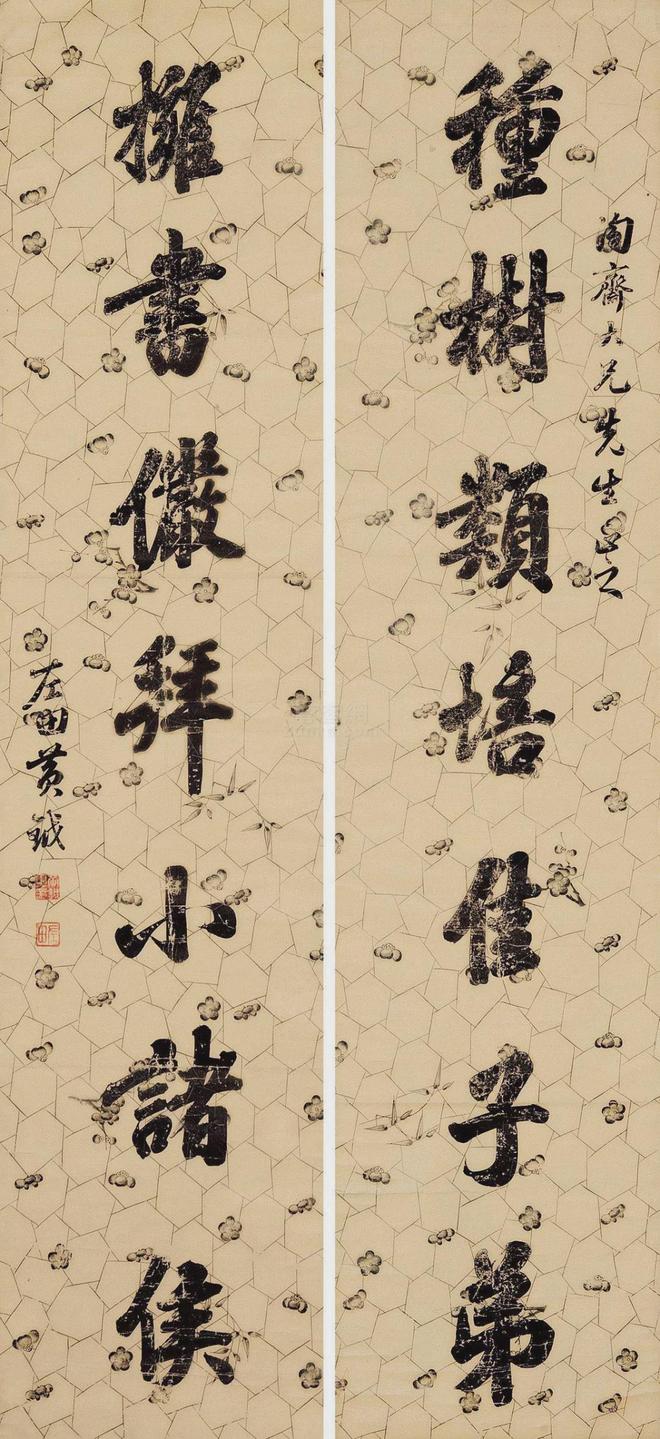 陶齋大兄先生正之
種樹類培佳子弟
擁書儼拜小諸侯
左田黃鉞